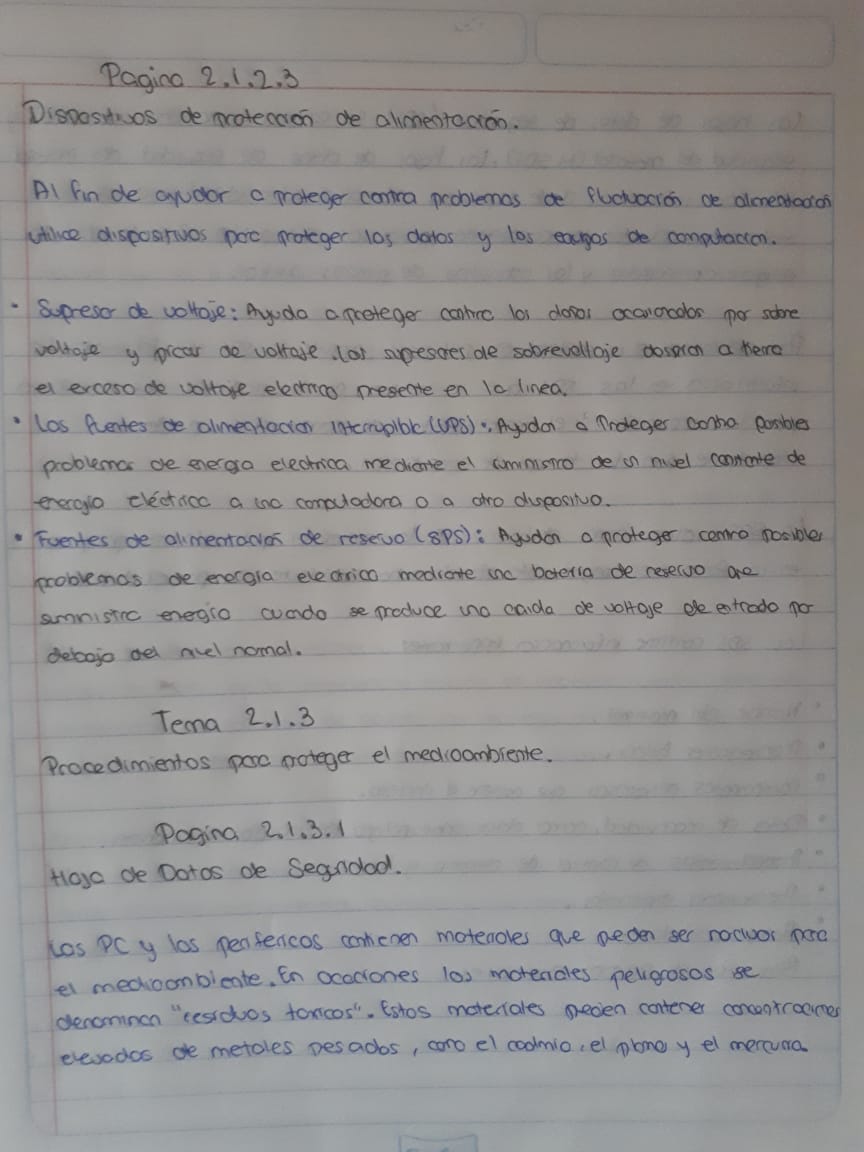 Pagina 2.1.2.3
Dispositivos de protección de alimentación.
Al fin de ayudar a proteger contra problemas de fluctuación de alimentación
utilice dispositivos para proteger los datos y los equipos de computación.
• Supresor de voltaje: Ayuda a proteger contra los daños ocacionados por sobre
voltaje y picos de voltaje. Los supresores de sobrevoltaje a tierra
el exceso de voltaje electrico presente en la linea.
• Las fuentes de alimentacion (UPS): Ayudan a Proteger contra posibles
problemas de energia electrica mediante el suministro de un nivel constante de
energia eléctrica a una computadora o a otro dispositivo.
• Fuentes de alimentación de reserva (SPS): Ayudan a proteger contra posibles
problemas de energía electrica mediante una bateria de reserva que
suministra energia cuando se produce una caida de voltaje de entrada por
debajo del nivel normal.
Tema 2.1.3
Procedimientos para proteger el medioambiente.
Pagina 2.1.3.1
Hoja de Datos de Seguridad.
Los PC y los perifericos contienen materiales que pueden ser nocivos para
el medioambiente. En ocaciones los materiales peligrosos se
denominan "residuos toxicos". Estos materiales pueden contener concentraciones
elevadas de metales pesados, como el cadmio, el plomo y el mercurio.